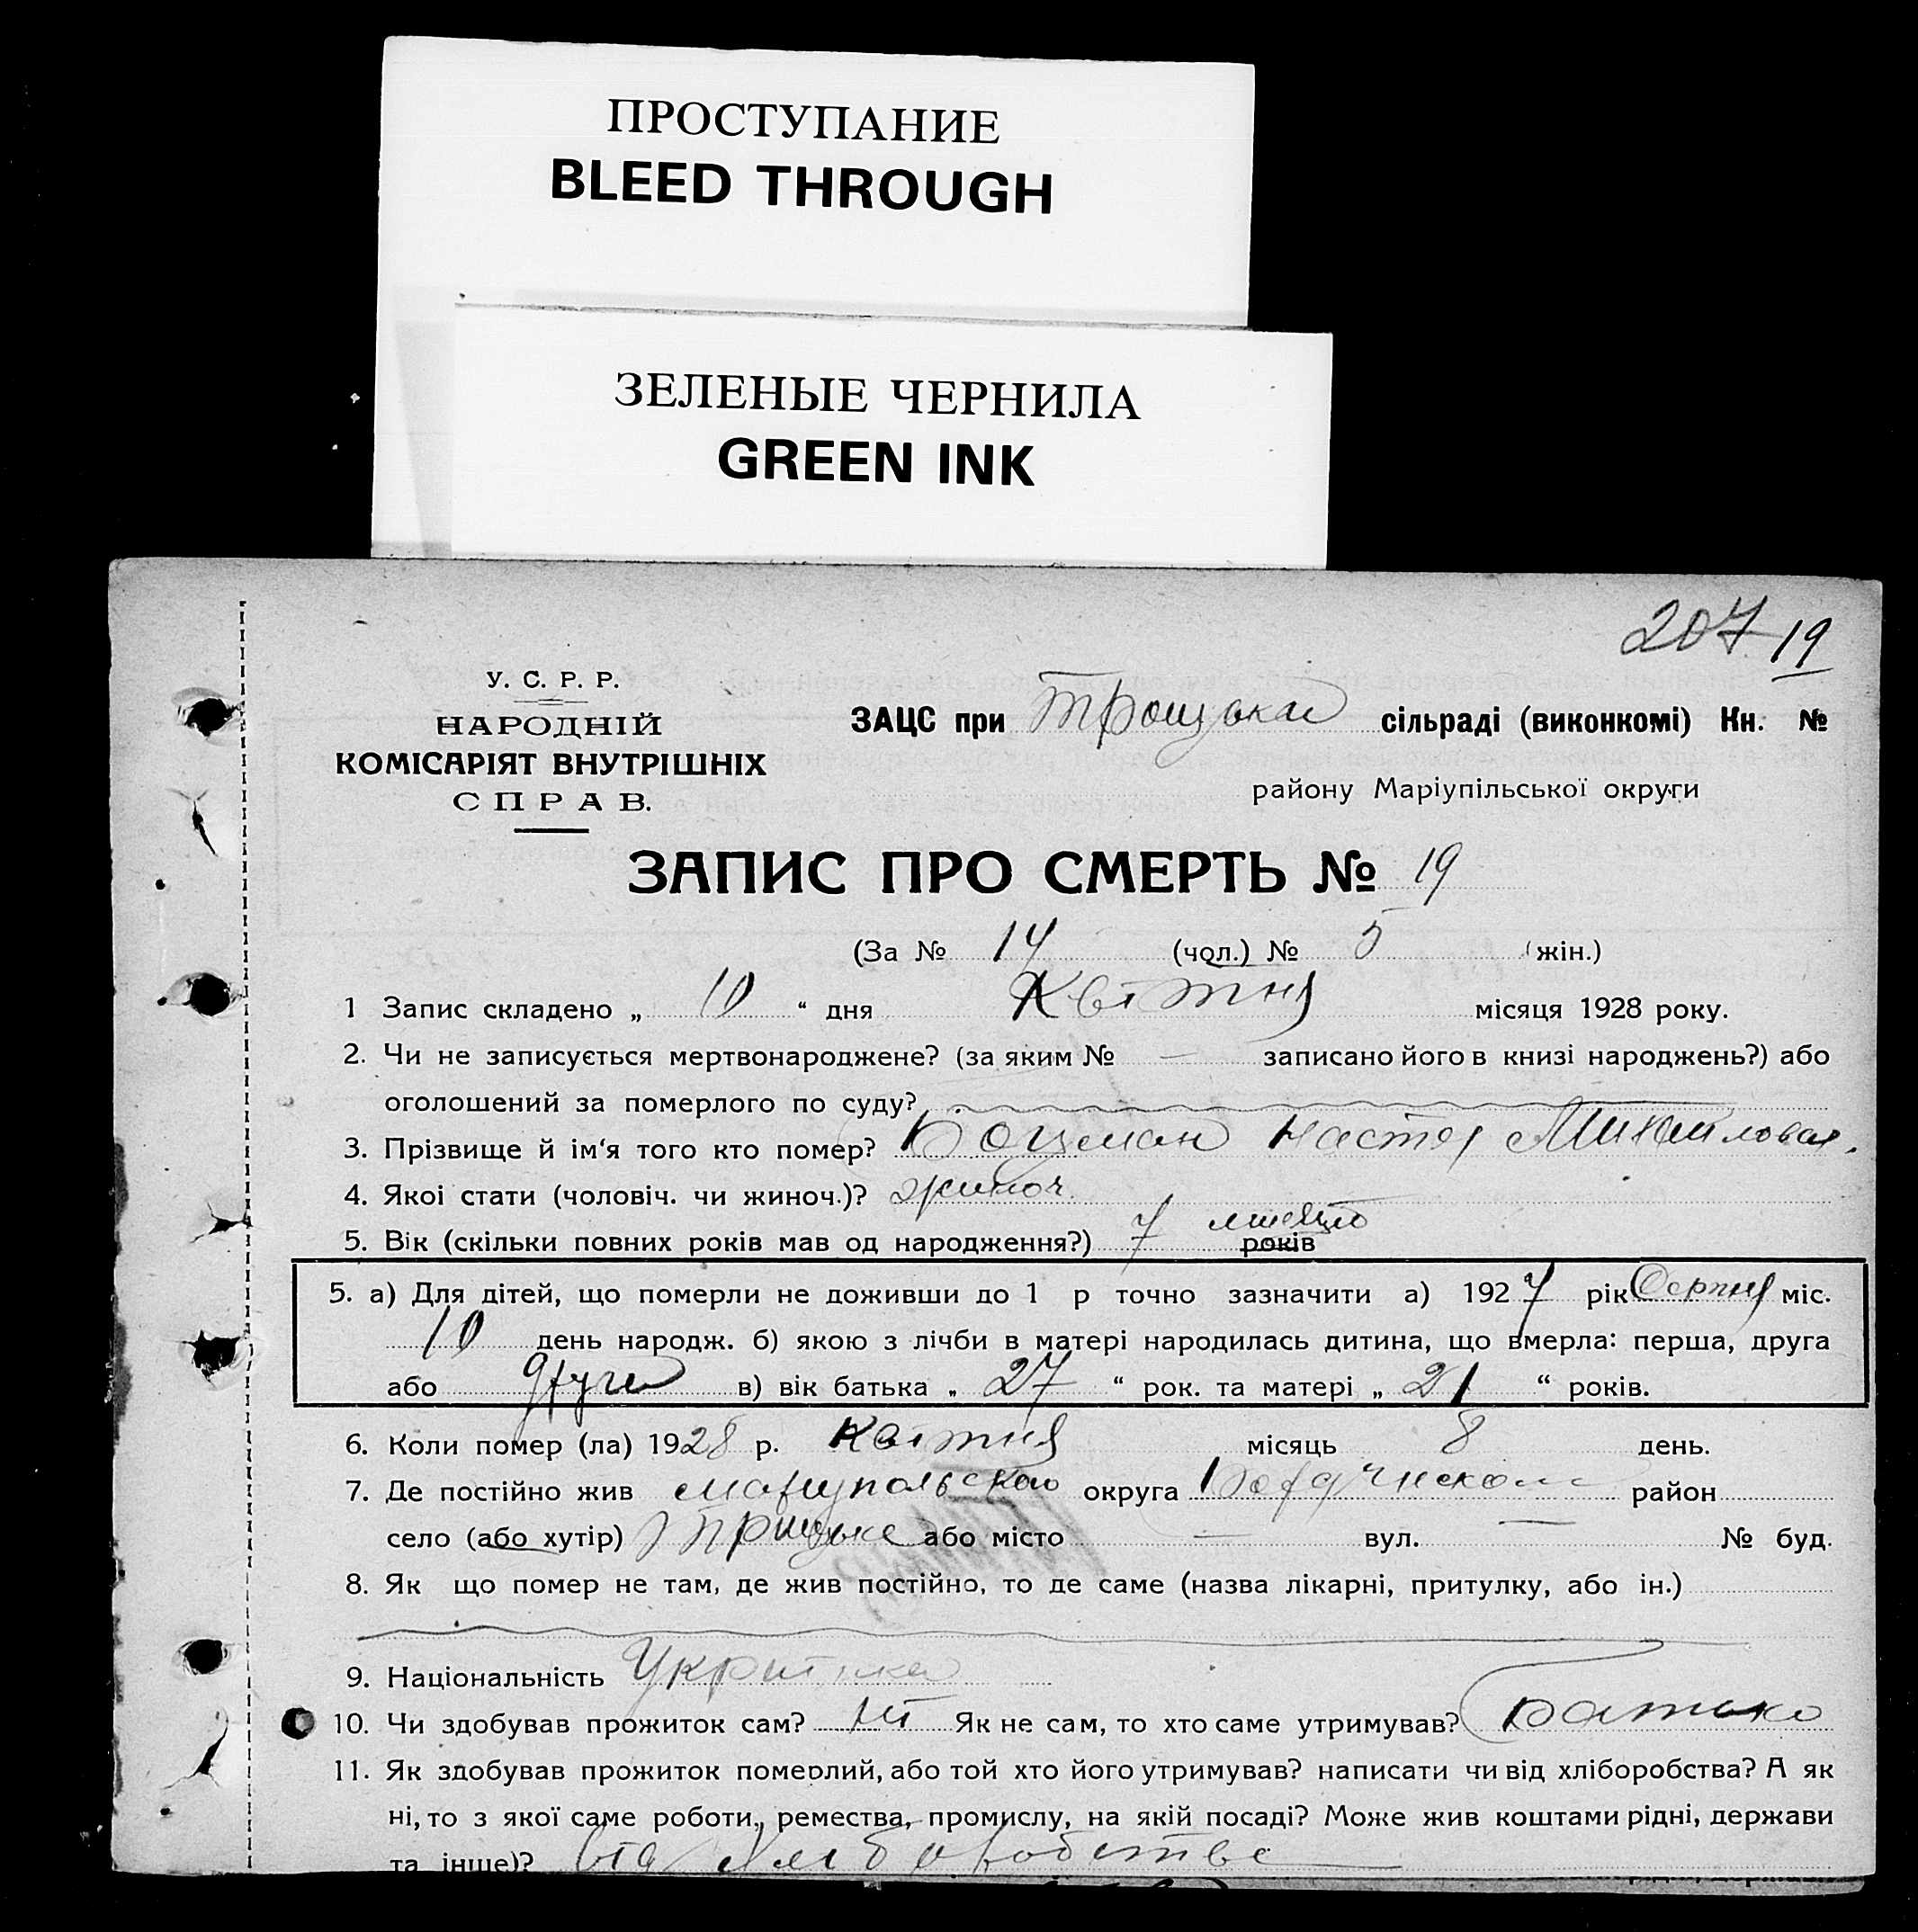 ПРОСТУПАНИЕ
BLEED THROUGH
ЗЕЛЕНЫЕ ЧЕРНИЛА
GREEN INK
207 19
У. С. Р. Р.
НАРОДНІЙ
КОМІСАРІЯТ ВНУТРІШНІХ
СПРАВ.
ЗАЦС при Троцька сільраді (виконкомі) Кн. №
району Маріупільської округи
ЗАПИС ПРО СМЕРТЬ № 19
(За № 14 (чол.) № 5 (жін.)
1 Запис складено „ 10 “ дня Квітня місяця 1928 року.
2. Чи не записується мертвонароджене? (за яким № — записано його в книзі народжень?) або
оголошений за померлого по суду?
3. Прізвище й ім‘я того кто помер? Боцман Настя Михайловая.
4. Якоі стати (чоловіч. чи жиноч.)? жиноч
5. Вік (скільки повних років мав од народження?) 7 місяців років
5. а) Для дітей, що померли не доживши до 1 р точно зазначити а) 1927 рік Серпня міс.
10 день народж. б) якою з лічби в матері народилась дитина, що вмерла: перша, друга
або друга в) вік батька „ 27 “ рок. та матері „ 21 “ років.
6. Коли помер (ла) 1928 р. Квітня місяць 8 день.
7. Де постійно жив округа район
село (або хутір) або місто — вул. — № буд.
8. Як що помер не там, де жив постійно, то де саме (назва лікарні, притулку, або ін.)
9. Національність Украінка
10. Чи здобував прожиток сам? ні Як не сам, то хто саме утримував? Батько
11. Як здобував прожиток померлий, або той хто його утримував? написати чи від хліборобства? А як
ні, то з якої саме роботи, ремества, промислу, на якій посаді? Може жив коштами рідні, держави
та інше)? від хліборобства